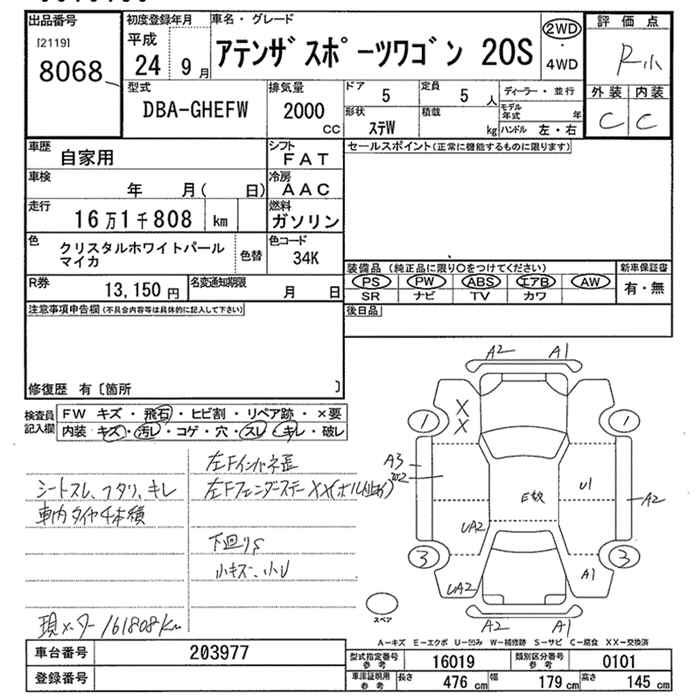 出品番号
[2119]
8068
初度登録年月
平成
24 9 月
車名・グレード
アテンザスポーツワゴン 20S
2WD
・
4WD
評価点
R小
外装 内装
C C
型式
DBA-GHEFW
排気量
2000
CC
ドア
5
定員
5 人
形状
ステW
積載
kg
ディーラー・並行
モデル年式 年
ハンドル 左・右
車歴
自家用
シフト
FAT
車検
年 月( 日)
冷房
AAC
走行
16万1千808 km
燃料
ガソリン
色
クリスタルホワイトパール
マイカ
色替
色コード
34K
R券
13,150 円
名変通知期限
月 日
セールスポイント(正常に機能するものに限ります)
装備品 (純正品に限り○をつけてください)
PS PW ABS エアB AW
SR ナビ TV カワ
新車保証書
有・無
後日品
注意事項申告欄(不具合内容等は具体的に記入して下さい)
修復歴 有〔箇所 〕
検査員
記入欄
FW キズ・飛石・ヒビ割・リペア跡・×要
内装 キズ・汚レ・コゲ・穴・スレ・キレ・破レ
シートスレ、フタリ、キレ
車内タイヤ4本積
左Fインパネ歪
左Fフェンダーステー XX
下廻りS
小キズ、小U
現メーター161808Km
A2 A1
X
X
1 1
A3
U1
E数
A2
UA2
3 3
UA2
A1
A2 A1
スペア
A－キズ E－エクボ U－凹み W－補修跡 S－サビ C－腐食 XX－交換済
車台番号
203977
登録番号
型式指定番号
参考
16019
類別区分番号
参考
0101
車庫証明用
参考
長さ
476 cm
幅
179 cm
高さ
145 cm